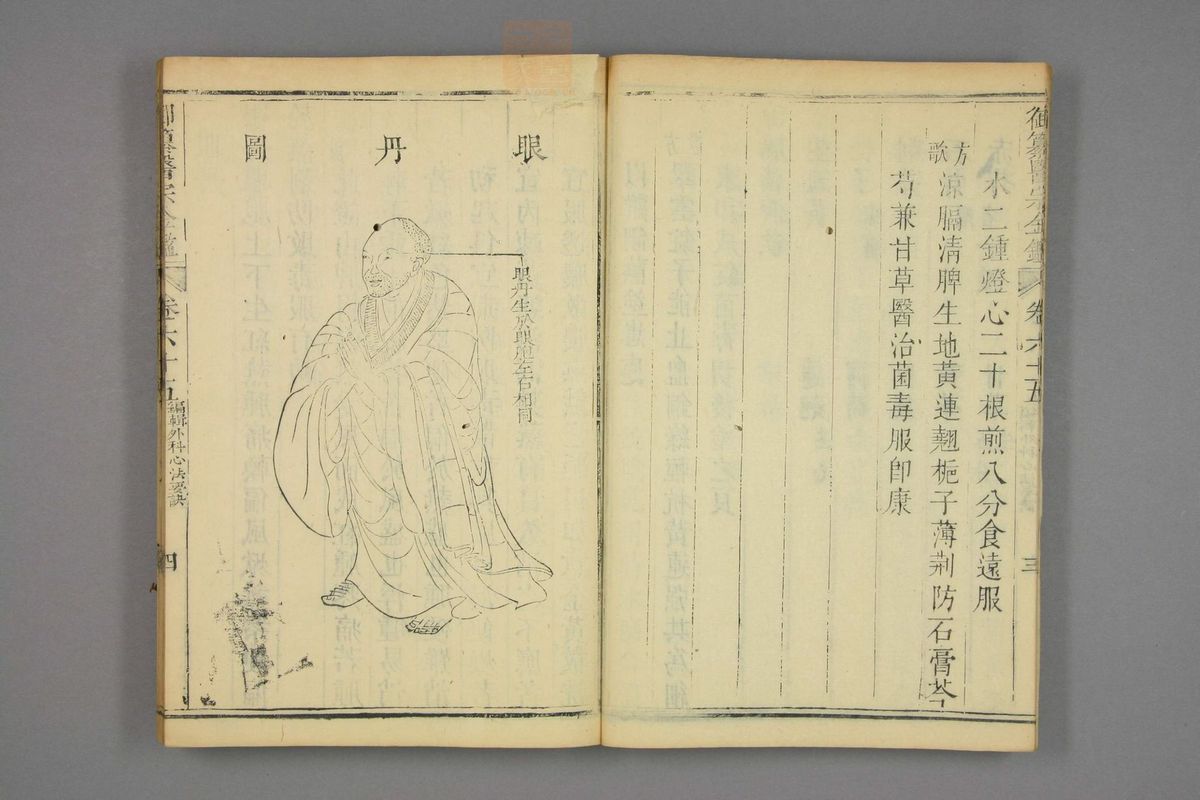 御纂醫宗金鑑 卷六十五 三
水二鍾燈心二十根煎八分食遠服
方歌 涼膈清脾生地黃連翹梔子薄荊防石膏芩
芍兼甘草醫治菌毒服即康
眼丹圖
眼丹生於眼胞左右相同
御纂醫宗金鑑 卷六十五 編輯外科心法要訣 四